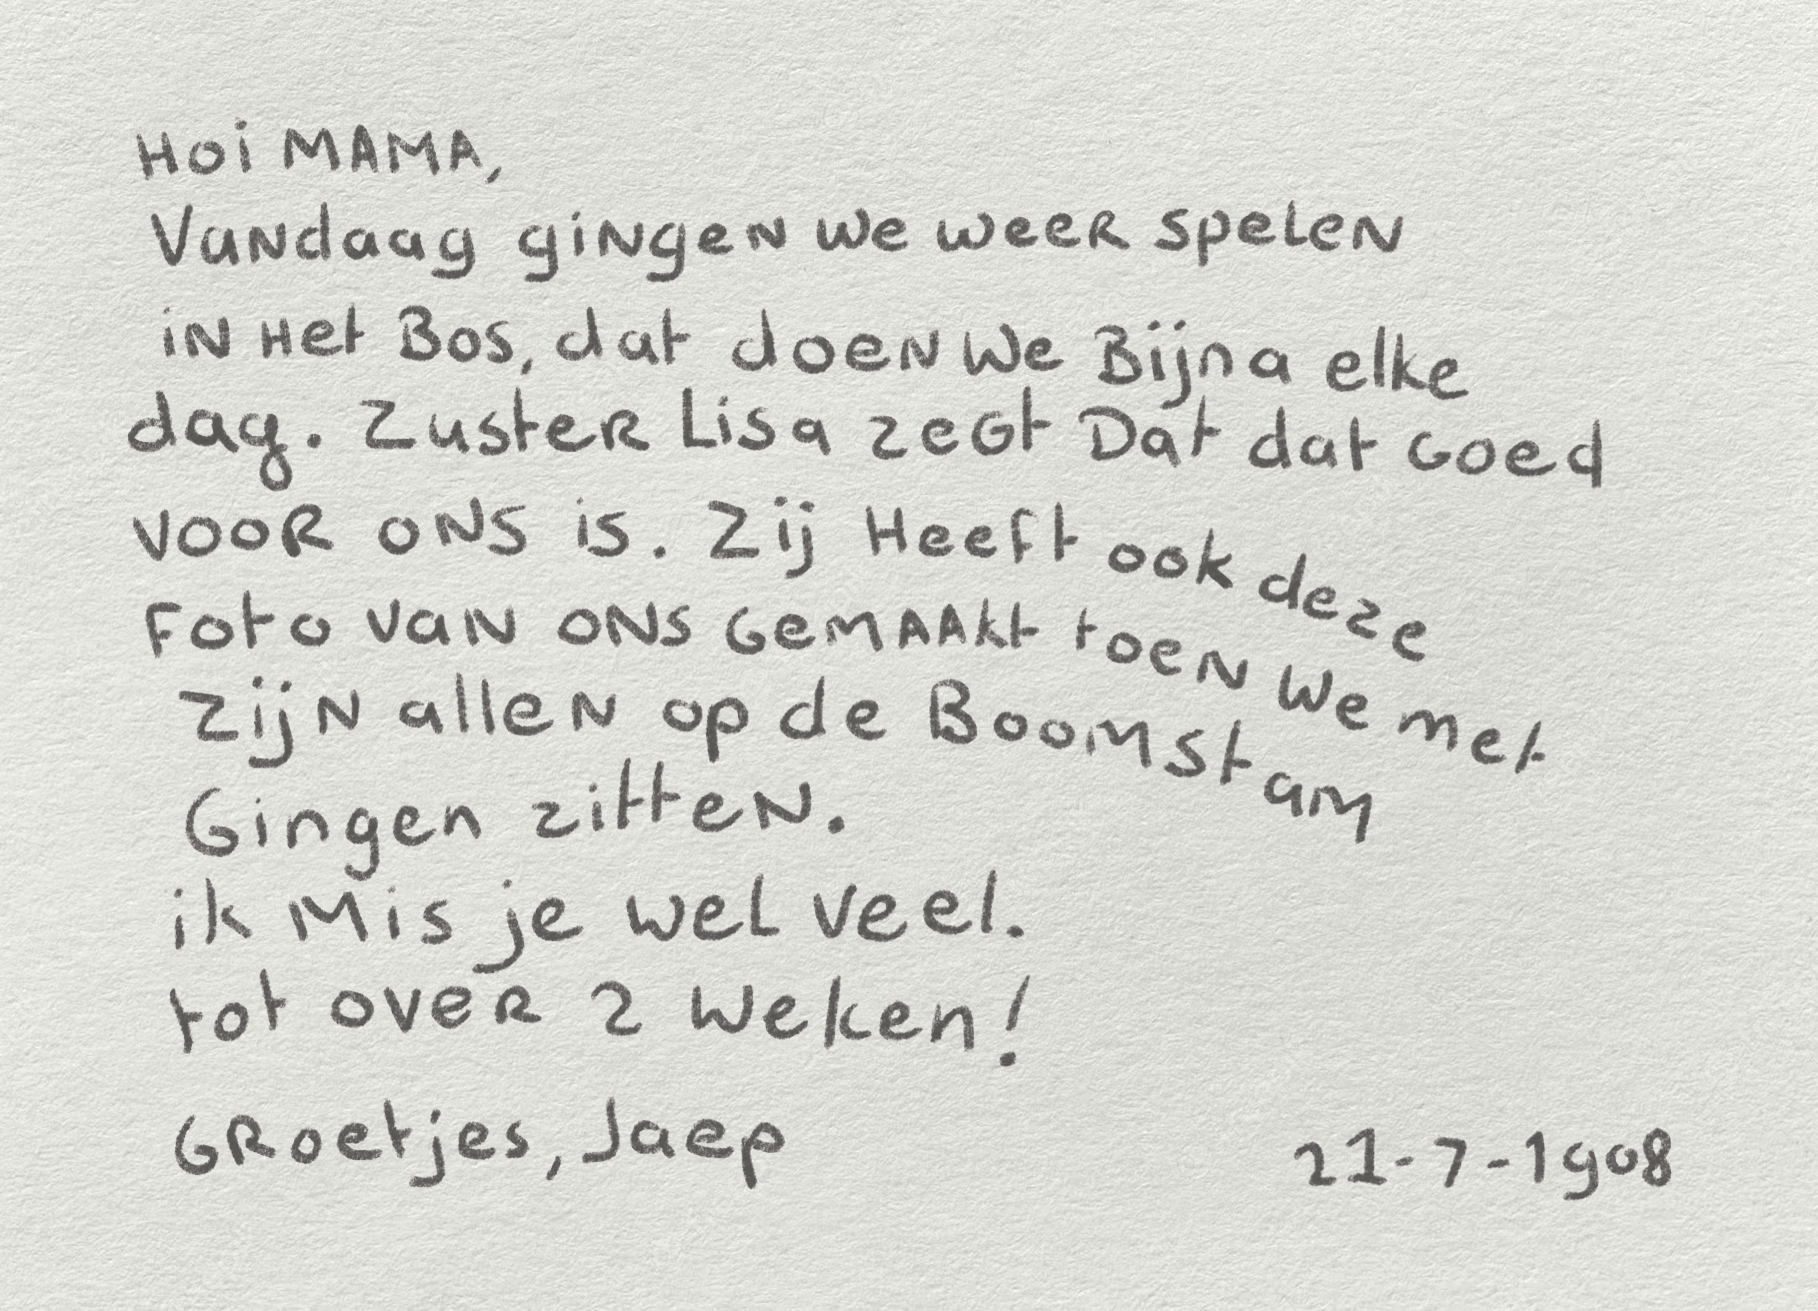 Hoi MAMA,
Vandaag gingen we weer spelen
in het Bos, dat doen we Bijna elke
dag. Zuster Lisa zegt Dat dat goed
voor ons is. Zij Heeft ook deze
Foto van ons gemaakt toen we met
zijn allen op de Boomstam
Gingen zitten.
ik Mis je wel veel.
tot over 2 weken!
Groetjes, Jaep
21-7-1908